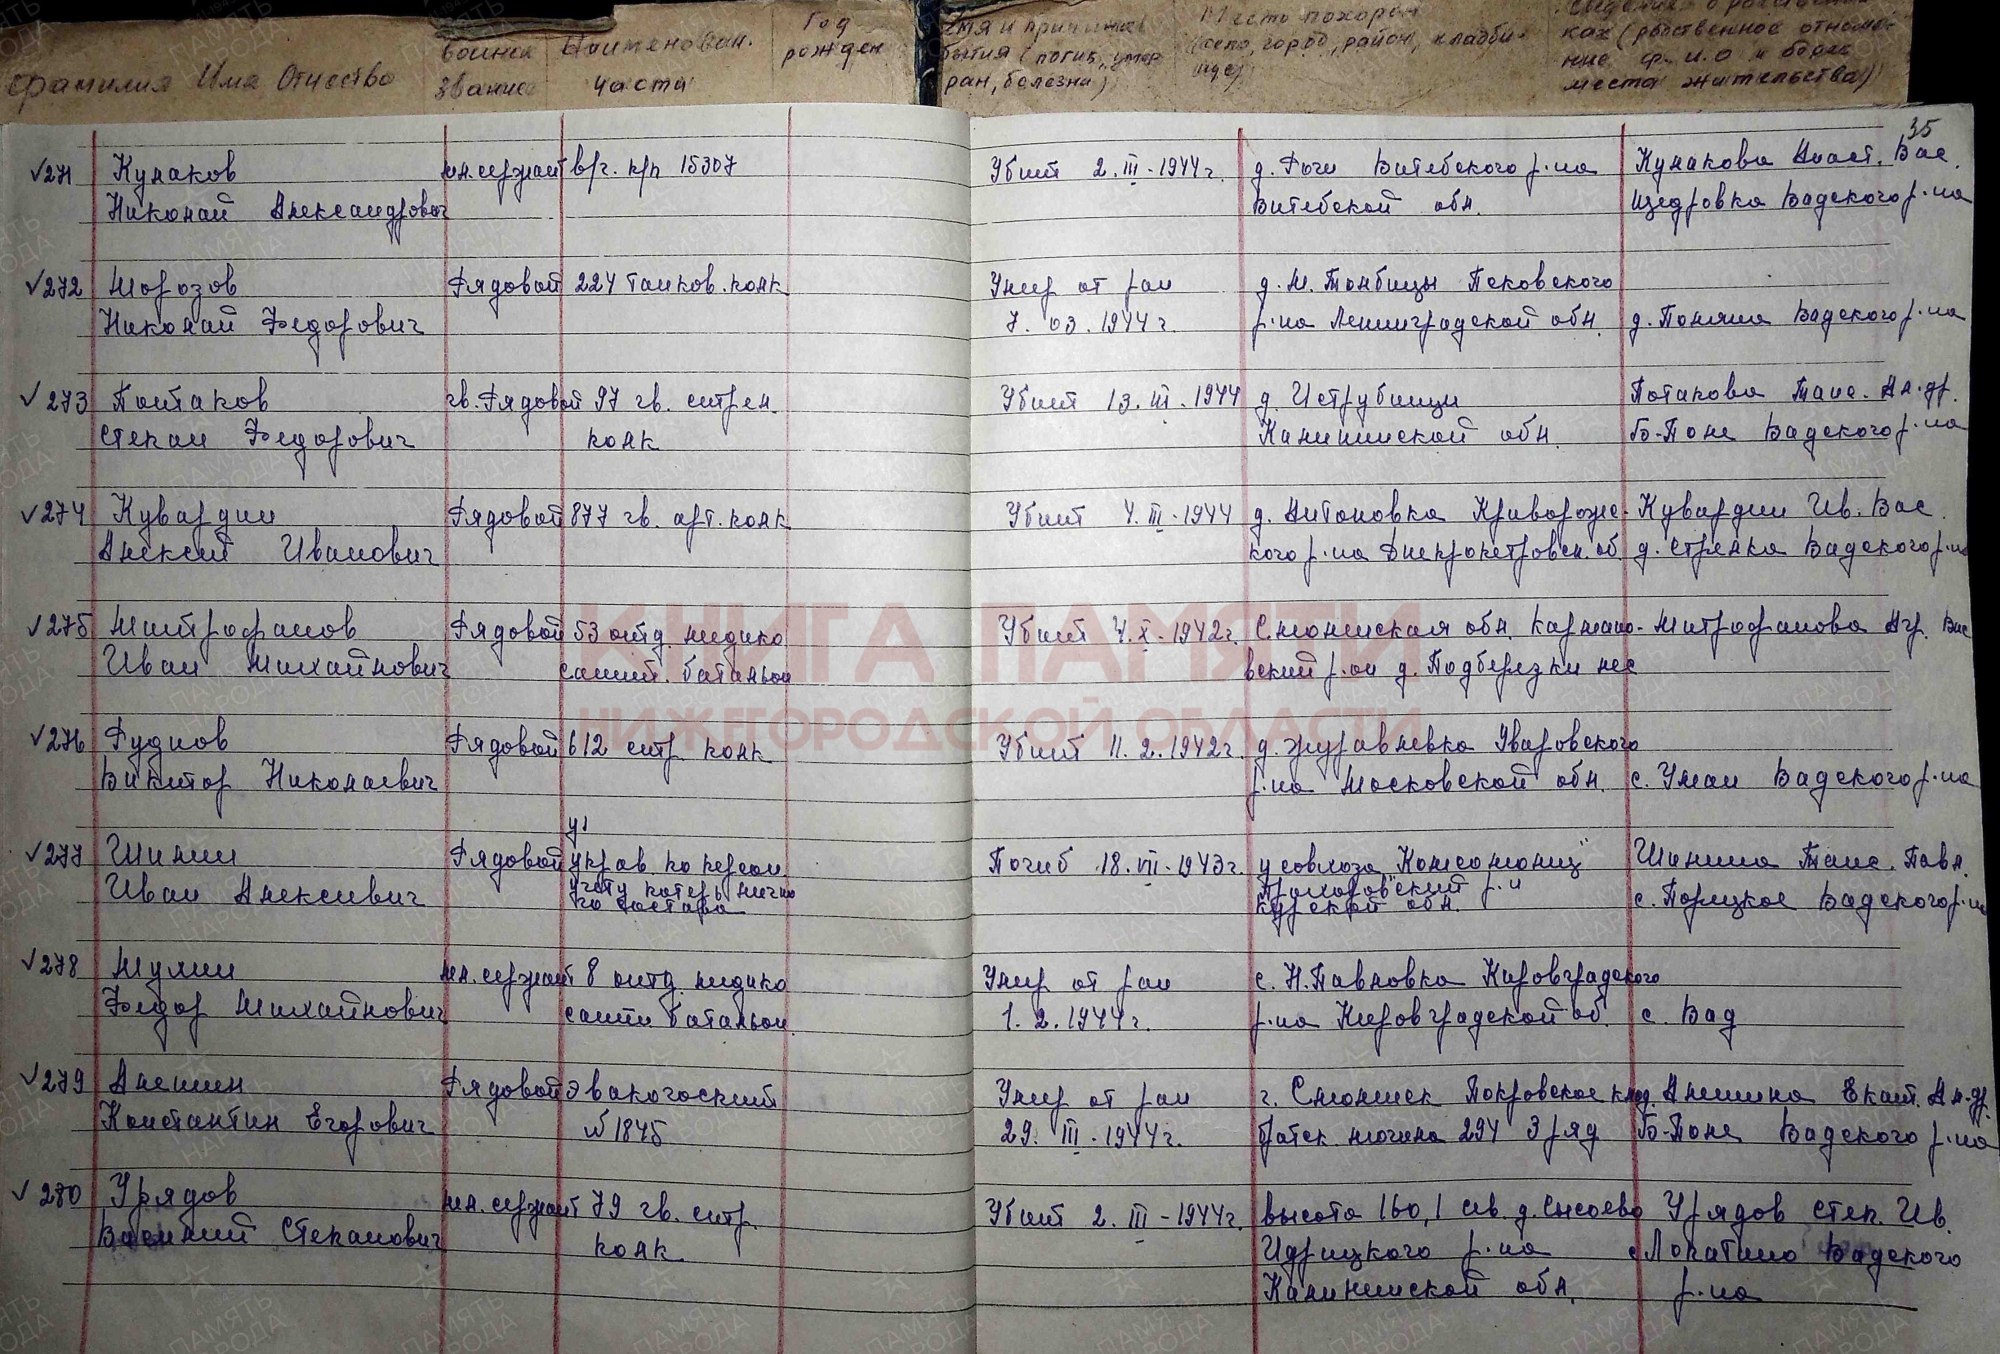 Фамилия Имя Отчество
воинск звание
Наименован. части
Год рожден
бытия (погиб, умер
ран, болезни)
Место похорон
(село, город, район, кладби-
ще)
ках (родственное отноше-
ние ф. и. о и адрес
места жительства)
35
271 Кулаков мл. сержант в/ч. п/п 15307 Убит 2. III - 1944г. Витебского р-на Кулакова Анаст. Вас.
Николай Александрович Витебской обл. Щедровка Вадского р-на
272 Морозов Рядовой 224 танков. полк Умер от ран д. М. Толбицы Псковского
Николай Федорович 7. 03. 1944г. р-на Ленинградской обл. д. Поляна Вадского р-на
273 Потаков гв. Рядовой 97 гв. стрел. Убит 13. III. 1944 д. Иструбищи Потакова Таис. Ал-др.
Степан Федорович полк Калининской обл. Б-Поле Вадского р-на
274 Кувардин Рядовой 877 гв. арт. полк Убит 4. III - 1944 д. Антоновка Криворож- Кувардин Ив. Вас.
Алексей Иванович кого р-на Днепропетровск. об д. Стрелка Вадского р-на
275 Митрофанов Рядовой 53 отд. медико Убит 4. X - 1942г. Смоленская обл. Кармано- Митрофанова Агр. Вас
Иван Михайлович санит. батальон вский р-он д. Подберезки лес
276 Рудиов Рядовой 612 стр полк Убит 11. 2. 1942г. д. Журавлевка Уваровского
Виктор Николаевич р-на Московской обл. с. Умай Вадского р-на
у
277 Шилин Рядовой управ. по персон. Погиб 18. VII - 1943г. у совхоза „Комсомолец" Шилина Таис. Павл.
Иван Алексеевич учету потерь лично Прохоровский р-н с. Порецкое Вадского р-на
го состава Курской обл.
278 Мулин мл. сержант 8 отд. медико Умер от ран с. Н. Павловка Кировградского
Федор Михайлович санит. батальон. 1. 2. 1944г. р-на Кировградской об. с. Вад
279 Алешин Рядовой Эвакогоспит Умер от ран г. Смоленск Покровское клад. Алешина Екат. Ал-др.
Константин Егорович № 1845 29. III - 1944г. братск. могила 294 3 ряд Б-Поле Вадского р-на
280 Урядов мл. сержант 79 гв. стр. Убит 2. III - 1944г. высота 160,1 сев. д. Сысоево Урядов Степ. Ив.
Василий Степанович полк Идрицкого р-на с Лопатино Вадского
Калининской обл. р-на
КНИГА ПАМЯТИ
НИЖЕГОРОДСКОЙ ОБЛАСТИ